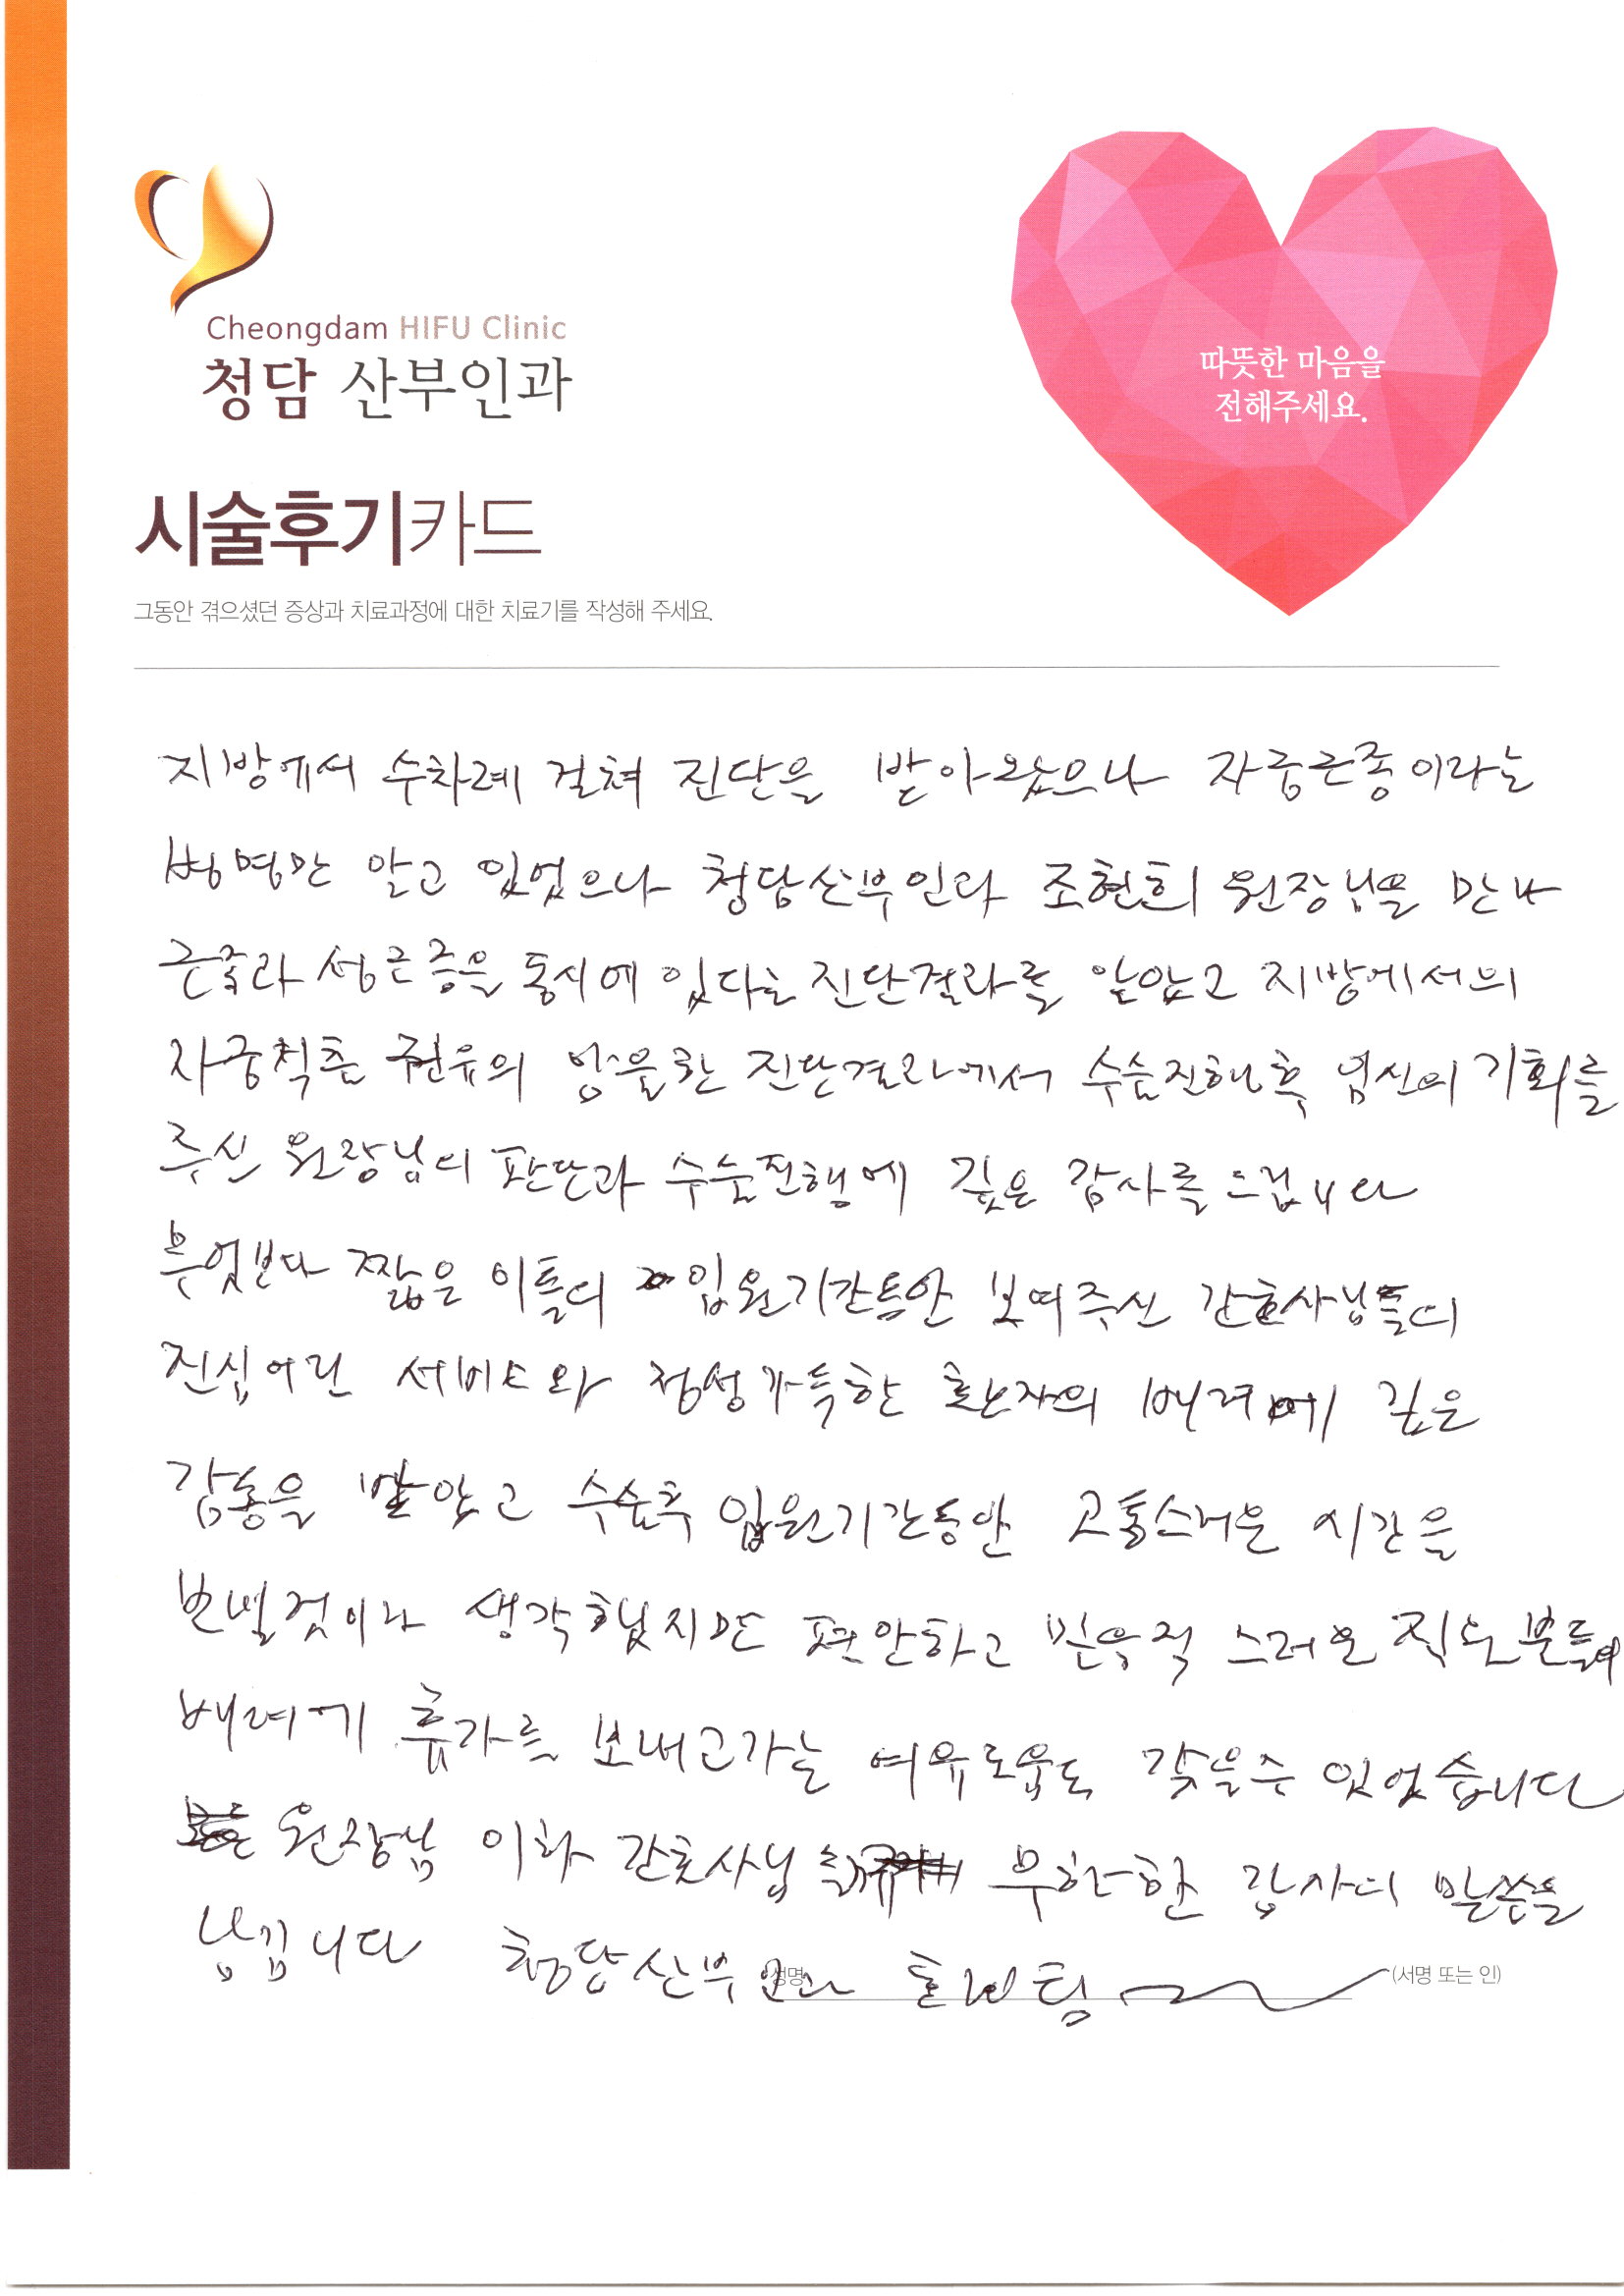 Cheongdam HIFU Clinic
청담 산부인과
따뜻한 마음을
전해주세요.
시술후기카드
그동안 겪으셨던 증상과 치료과정에 대한 치료기를 작성해 주세요.
지방에서 수차례 걸쳐 진단을 받아왔으나 자궁근종이라는
병명만 알고 있었으나 청담산부인과 조현희 원장님을 만나
근종과 선근증을 동시에 있다는 진단결과를 알았고 지방에서의
자궁적출 권유의 진단결과에서 수술진행후 임신의 기회를
주신 원장님의 판단과 수술진행에 깊은 감사를 드립니다
무엇보다 짧은 이틀의 입원기간동안 보여주신 간호사님들의
진심어린 서비스와 정성가득한 환자의 배려에 깊은
감동을 받았고 수술후 입원기간동안 고통스러운 시간을
보낼것이라 생각했지만 편안하고 스러운 직원분들의
배려에 휴가를 보내고가는 여유로움도 갖을수 있었습니다
원장님 이하 간호사님 무한한 감사의 말씀을
남깁니다 청담산부인과
성명
(서명 또는 인)